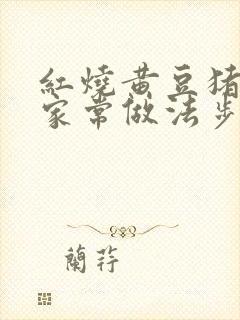 紅燒黄豆猪
家常做法步
蘭荇